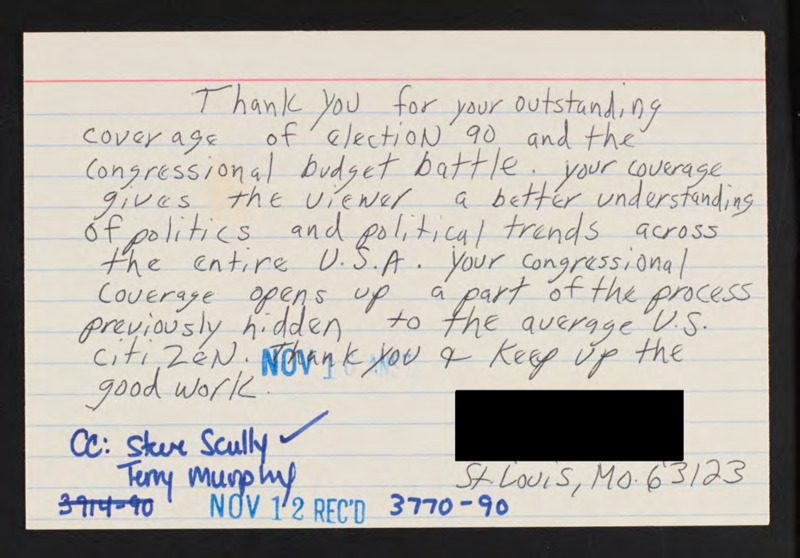 Thank you for your outstanding
coverage of election 90 and the
Congressional budget battle. your coverage
gives the viewer a better understanding
of politics and political trends across
the entire U.S.A. your congressional
coverage opens up a part of the process
previously hidden to the average U.S.
citizen. Thank you & keep up the
good work.
NOV 1
CC: Steve Scully ✓
Terry Murphy
St. Louis, Mo. 63123
3914-90 NOV 12 REC'D 3770-90